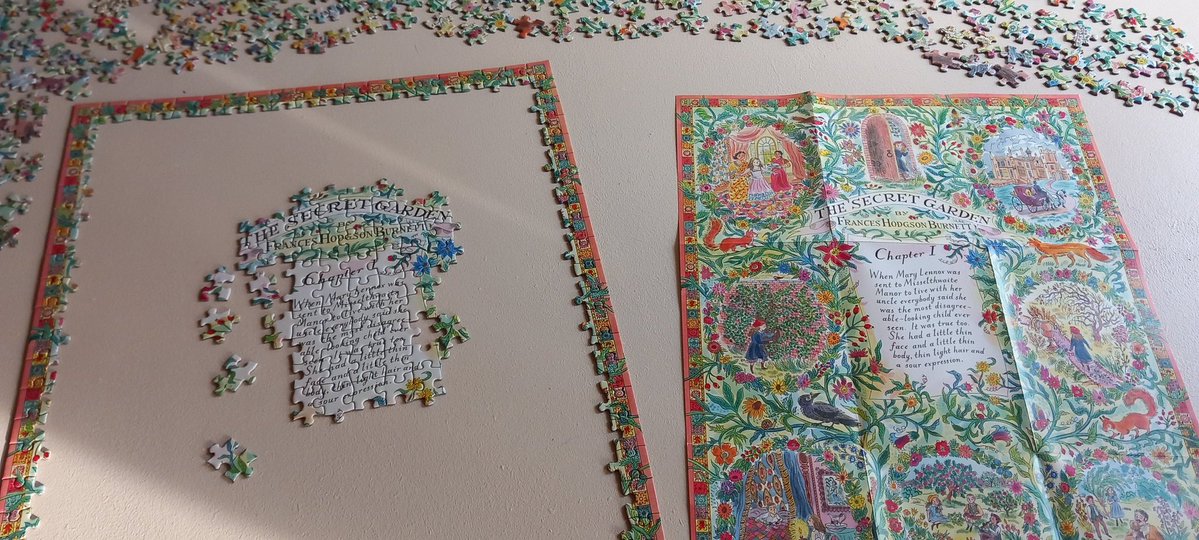 THE SECRET GARDEN
BY
FRANCES HODGSON BURNETT
Chapter I
When Mary Lennox was
sent to Misselthwaite
Manor to live with her
uncle everybody said she
was the most disagree-
able-looking child ever
seen. It was true too.
She had a little thin
face and a little thin
body, thin light hair and
a sour expression.
THE SECRET GARDEN
BY
FRANCES HODGSON BURNETT
Chapter I
When Mary Lennox was
sent to Misselthwaite
Manor to live with her
uncle everybody said she
was the most disagree-
able-looking child ever
seen. It was true too.
She had a little thin
face and a little thin
body, thin light hair and
a sour expression.